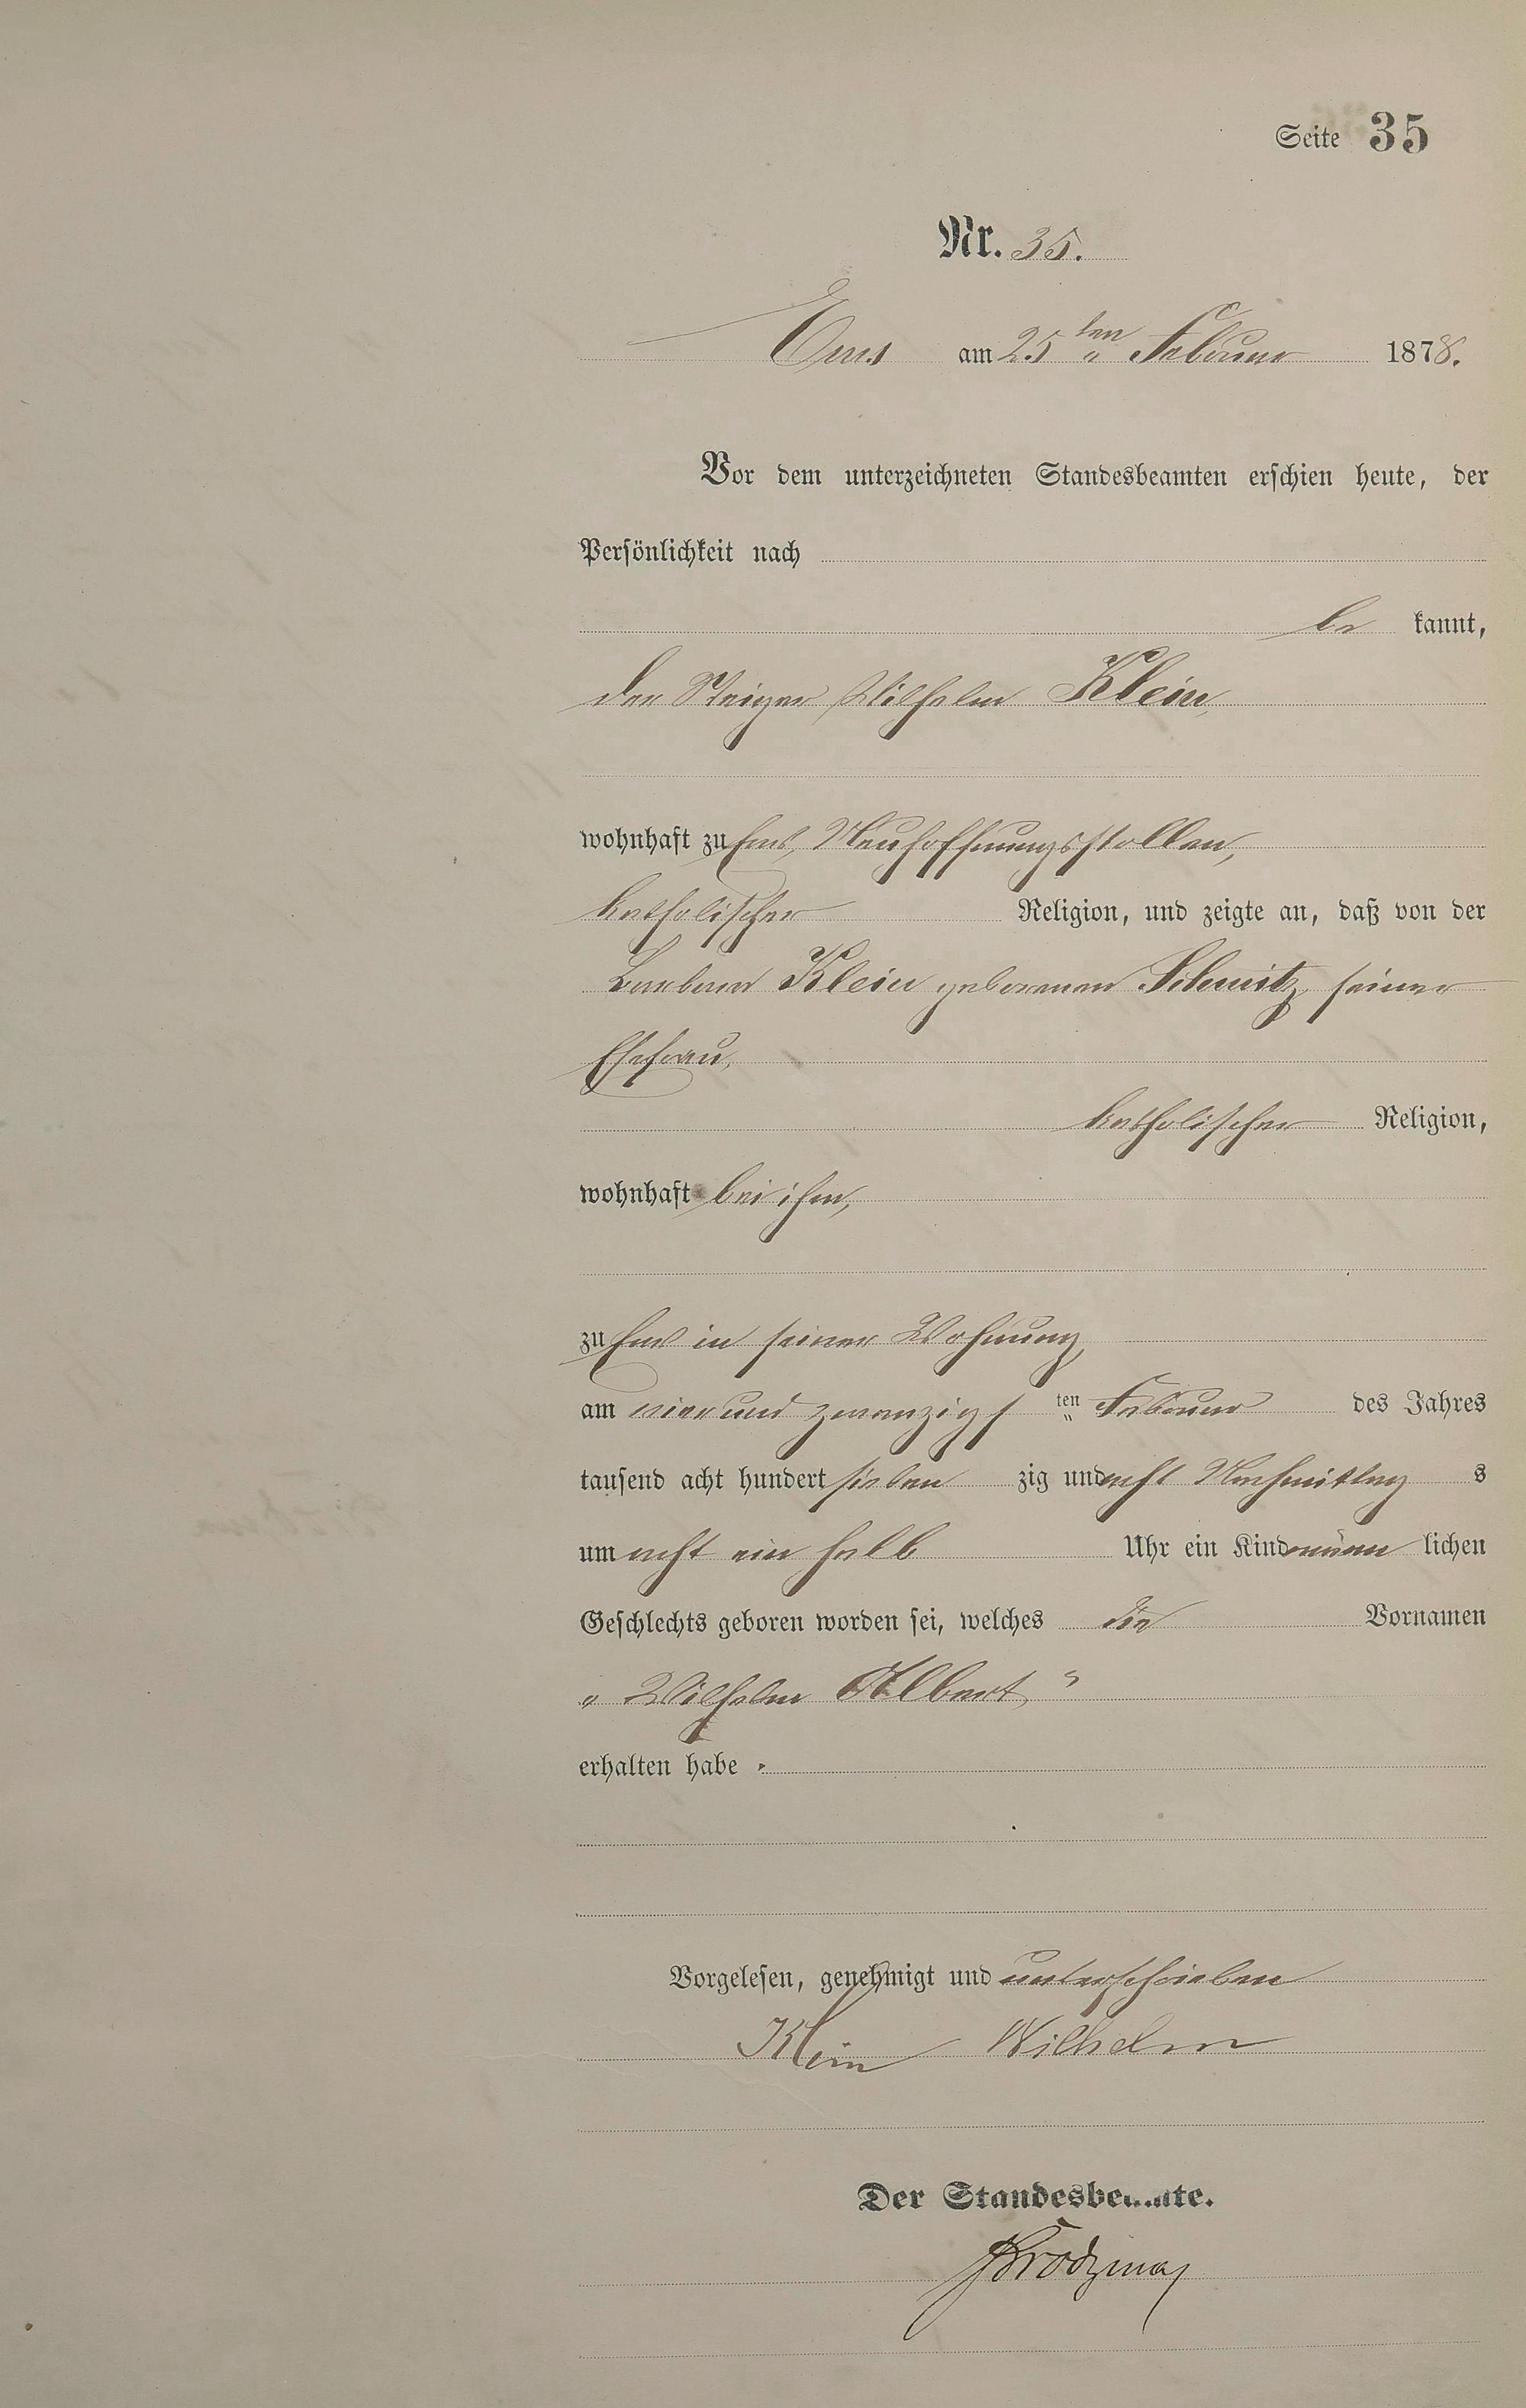 Seite 35
Nr. 35.
Ems am 25ten Februar 1878.
Vor dem unterzeichneten Standesbeamten erschien heute, der
Persönlichkeit nach
be kannt,
der Steiger Wilhelm Klein,
wohnhaft zu Ems, Neuhoffnungsstollen,
katholischer Religion, und zeigte an, daß von der
Barbara Klein geborenen Schmitz, seiner
Ehefrau,
katholischer Religion,
wohnhaft bei ihm,
zu Ems in seiner Wohnung,
am vier und zwanzigs ten Februar des Jahres
tausend acht hundert sieben zig und acht Nachmittag s
um acht ein halb Uhr ein Kind männ lichen
Geschlechts geboren worden sei, welches die Vornamen
„ Wilhelm Albert, "
erhalten habe .
Vorgelesen, genehmigt und unterschrieben
Klein Wilhelm
Der Standesbeamte.